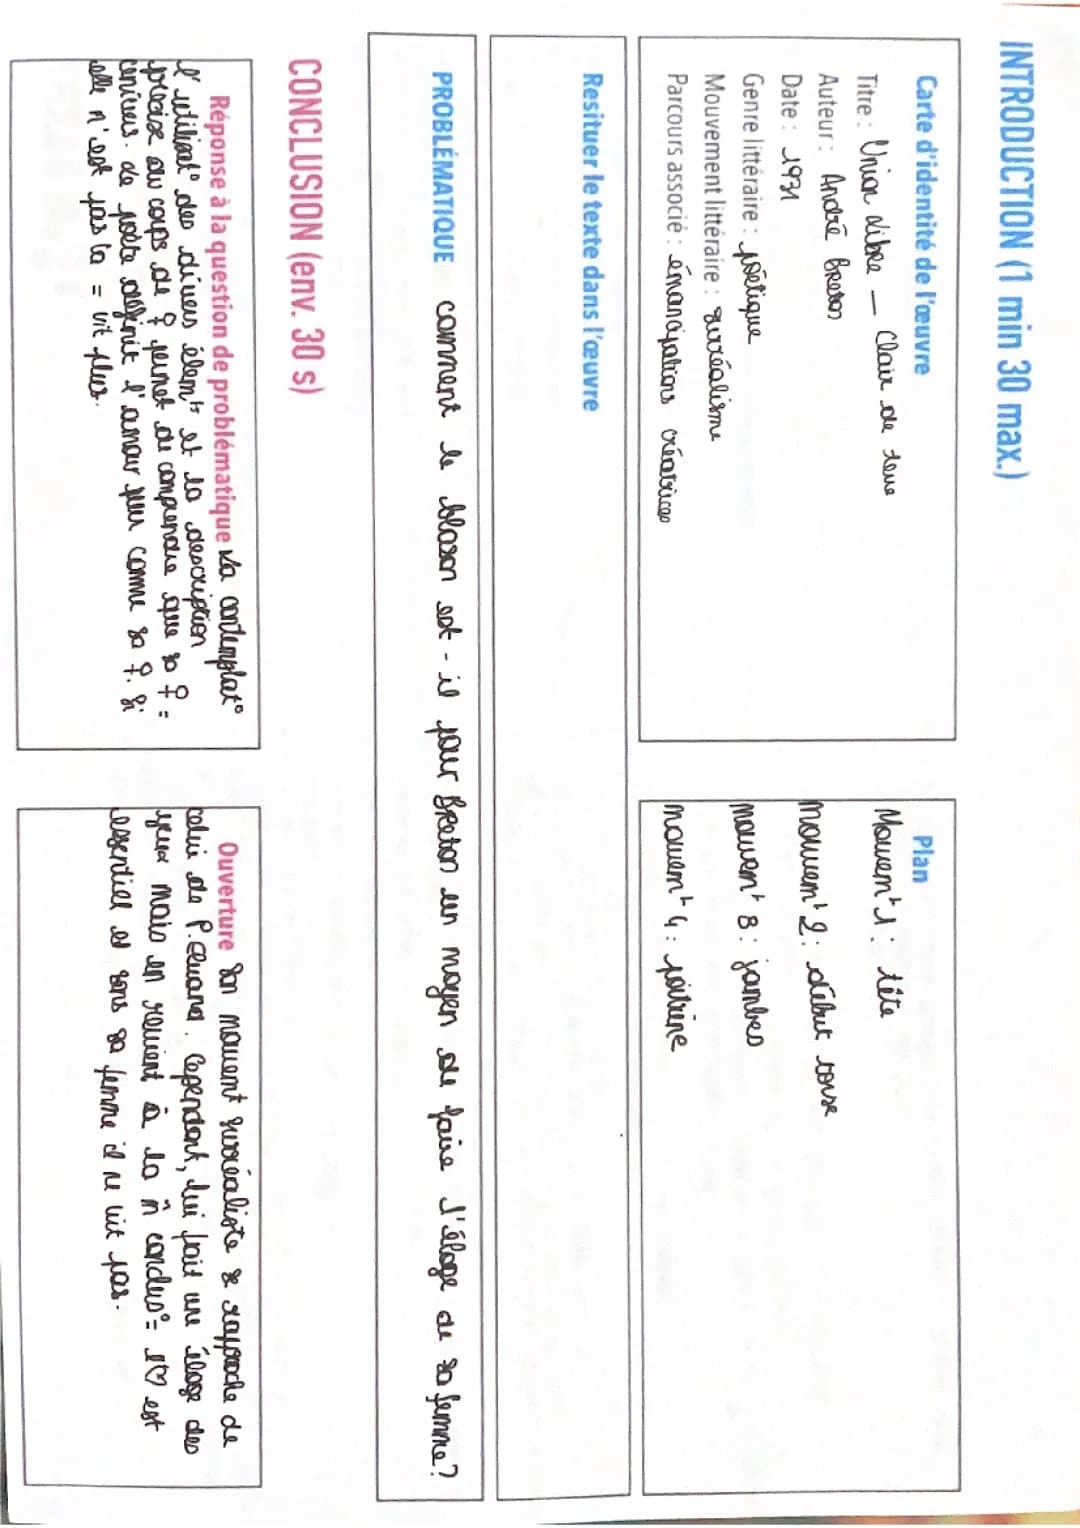 INTRODUCTION (1 min 30 max.)
Carte d'identité de l'œuvre
Titre : Union libre — Clair de terre
Auteur : André Breton
Date : 1931
Genre littéraire : poétique
Mouvement littéraire : surréalisme
Parcours associé : émancipations créatrices
Plan
Mouvemt 1 : tête
mouvemt 2 : début torse
mouvemt 3 : jambes
mouvemt 4 : poitrine
Resituer le texte dans l'œuvre
PROBLÉMATIQUE comment le blason est-il pour Breton un moyen de faire l'éloge de sa femme ?
CONCLUSION (env. 30 s)
Réponse à la question de problématique La contemplat°
l'utilisat° des divers élemts et la description
précise du corps de ♀ permet de comprendre que sa ♀ =
l'univers. Le poète définit l'amour pur comme sa ♀. Si
elle n'est pas là = vit plus.
Ouverture Son mouvemt surréaliste se rapproche de
celui de P.Eluard. Cependant, lui fait une éloge des
yeux mais en revient à la m̂ conclus° = l'♡ est
essentiel et sans sa femme il ne vit pas.